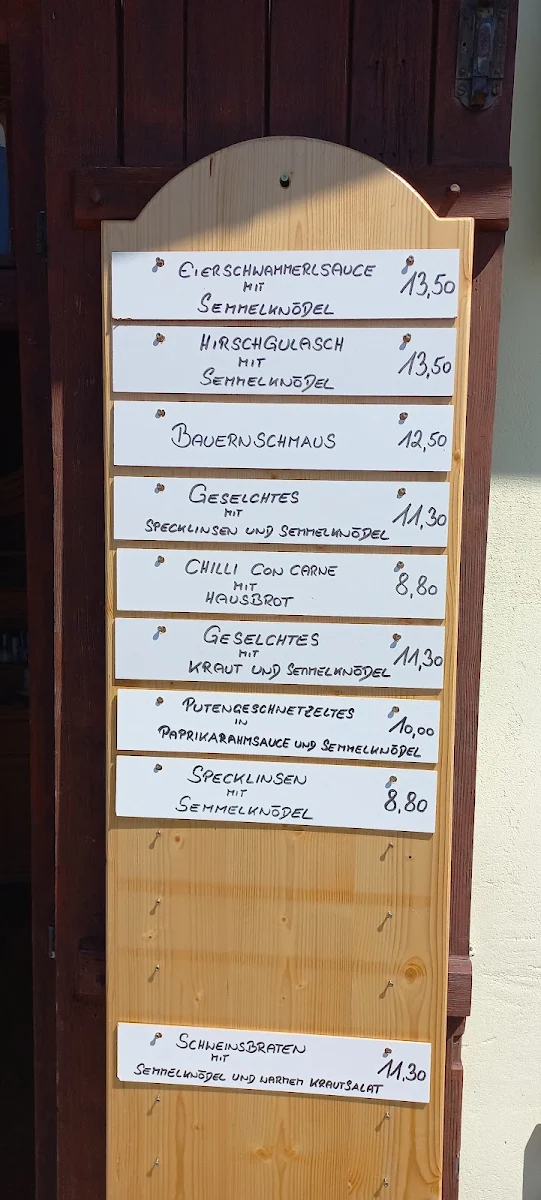 EIERSCHWAMMERLSAUCE
MIT
SEMMELKNÖDEL
13,50
HIRSCHGULASCH
MIT
SEMMELKNÖDEL
13,50
BAUERNSCHMAUS
12,50
GESELCHTES
MIT
SPECKLINSEN UND SEMMELKNÖDEL
11,30
CHILLI CON CARNE
MIT
HAUSBROT
8,80
GESELCHTES
MIT
KRAUT UND SEMMELKNÖDEL
11,30
PUTENGESCHNETZELTES
IN
PAPRIKARAHMSAUCE UND SEMMELKNÖDEL
10,00
SPECKLINSEN
MIT
SEMMELKNÖDEL
8,80
SCHWEINSBRATEN
MIT
SEMMELKNÖDEL UND WARMEM KRAUTSALAT
11,30